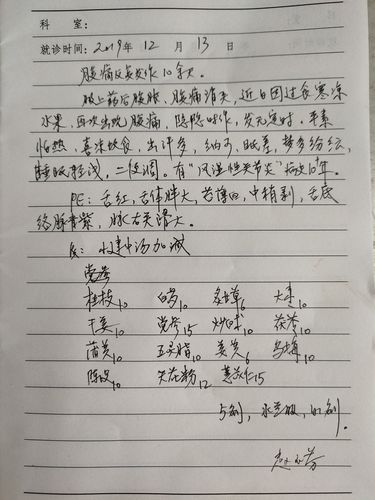 科 室：
就诊时间：2019年 12 月 13 日
腹痛反复发作10余天。
服上药后腹胀、腹痛消失，近日因过食寒凉
水果，再次出现腹痛，隐隐时作，发无定时。平素
怕热，喜凉饮食，出汗多，纳可，眠差，梦多纷纭，
睡眠轻浅，二便调。有“风湿性关节炎”病史10+年。
PE：舌红，舌体胖大，苔薄白，中根剥，舌底
络脉青紫，脉右关滑大。
小建中汤加减
党参
桂枝10 白芍10 炙甘草6 大枣10
干姜10 党参15 10 茯苓10
蒲黄10 五灵脂10 6 乌梅10
陈皮10 天花粉12 薏苡仁15
5剂，水煎服，日1剂。